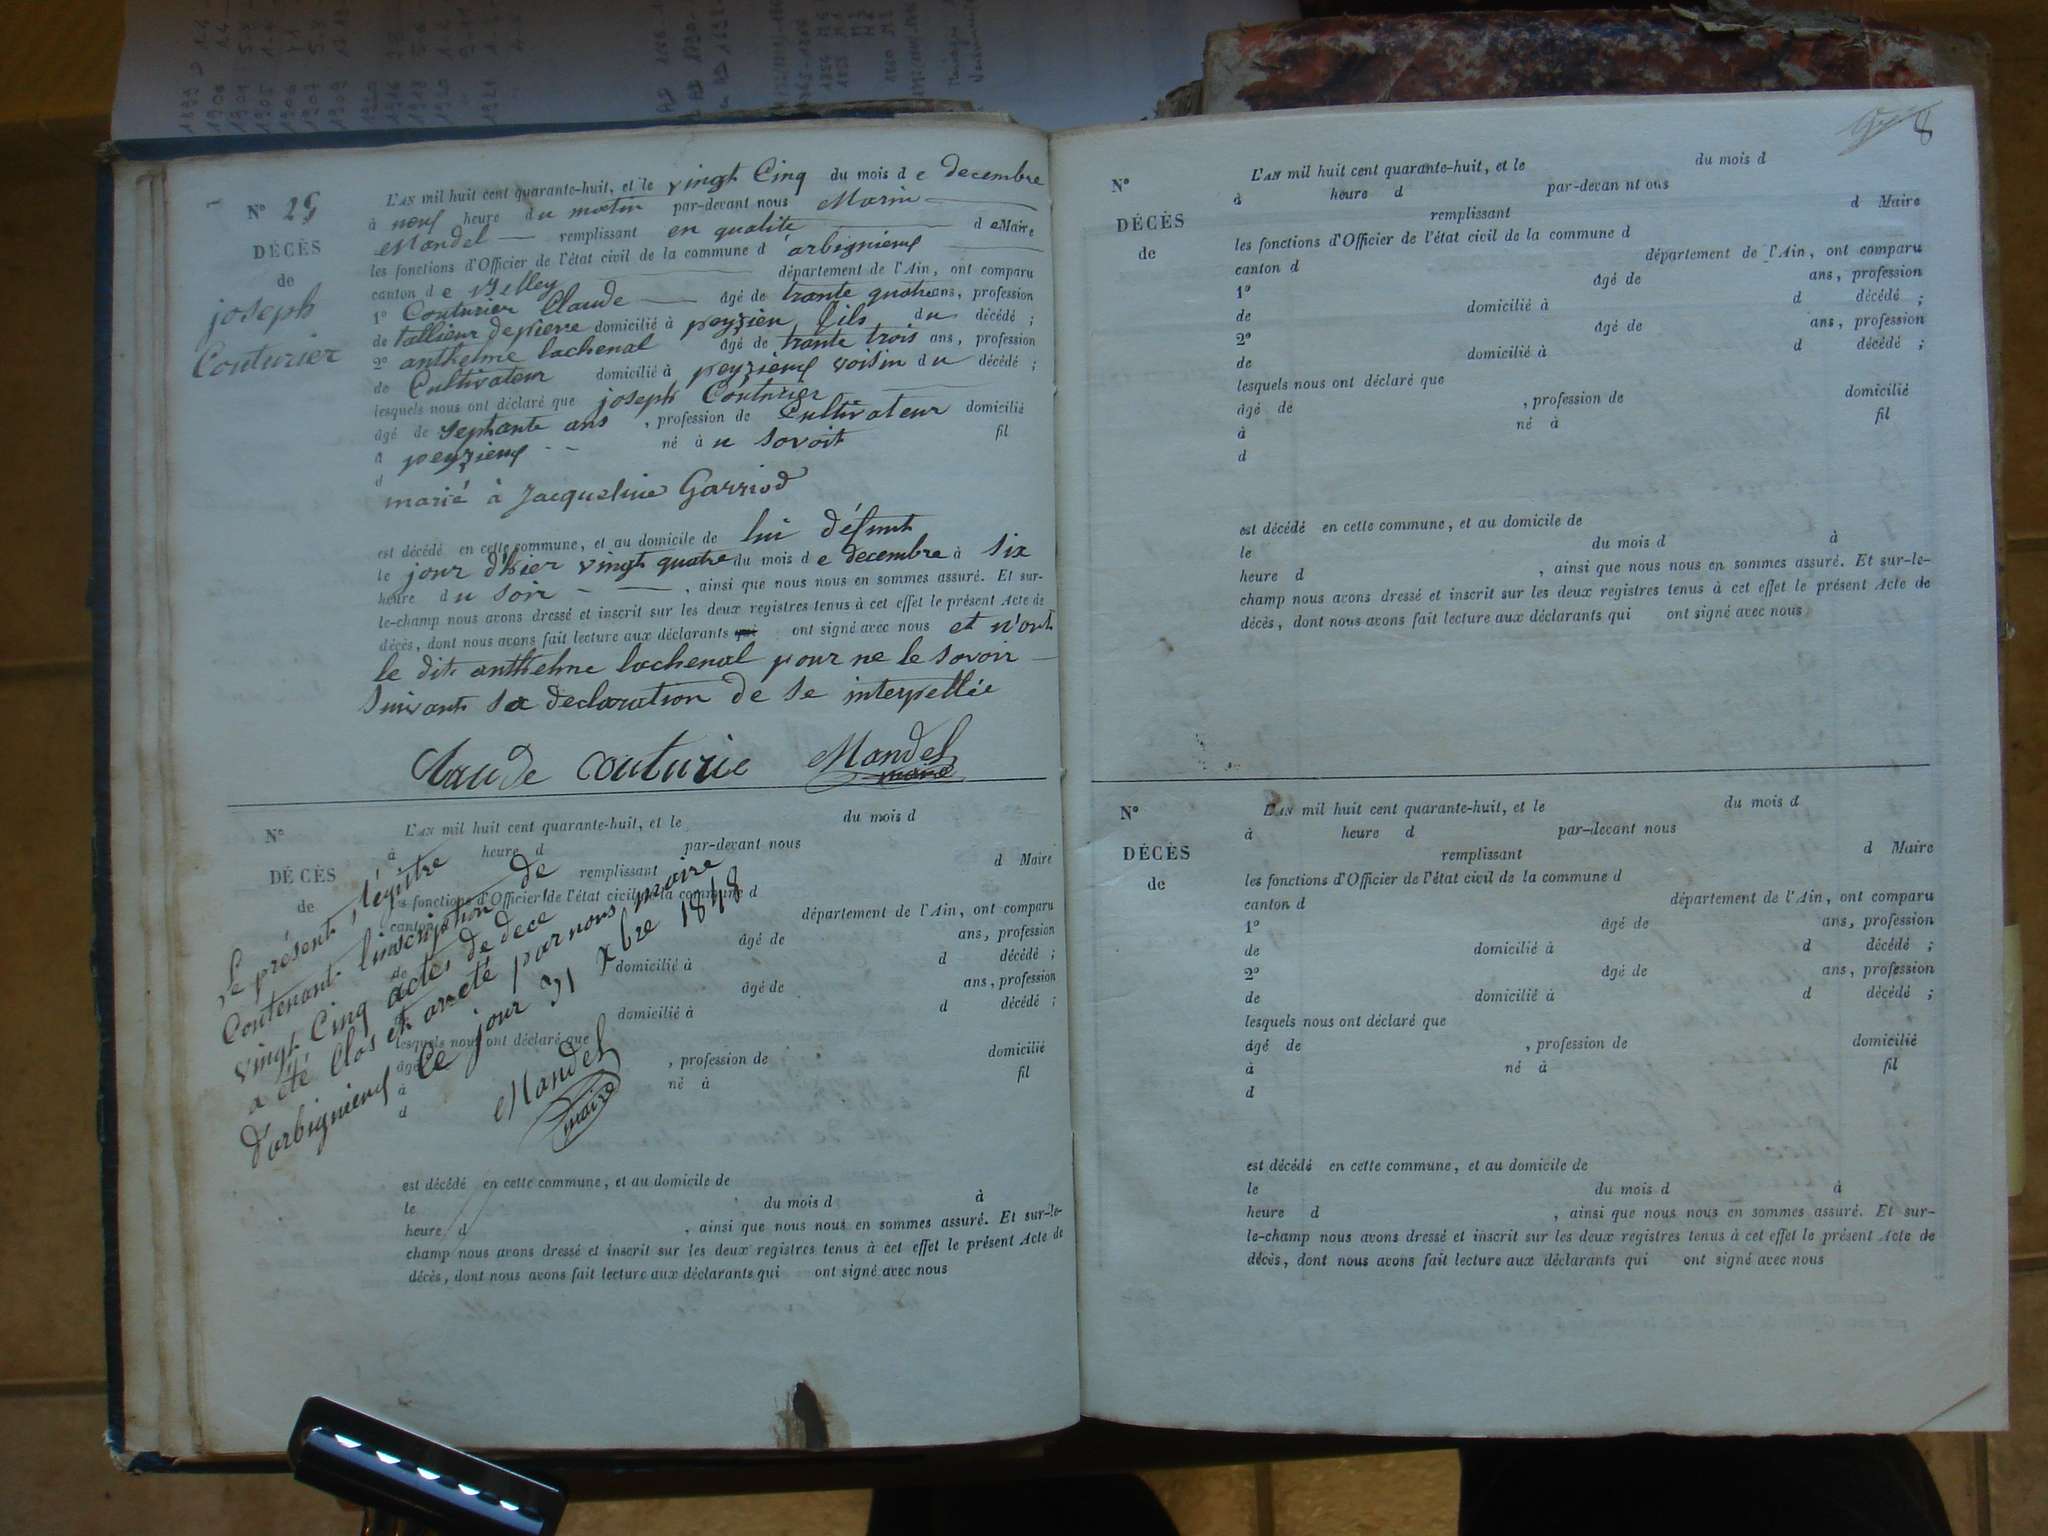 1899
1904
1905
1906
1907
1909
1916
1918
1920
1921
N° 25
DÉCÈS
de
joseph
Couturier
L'AN mil huit cent quarante-huit, et le vingt Cinq du mois d e decembre
à neuf heure du matin par-devant nous Marin
Mandel remplissant en qualité d e Maire
les fonctions d'Officier de l'état civil de la commune d'arbignieu
canton d e Belley département de l'Ain, ont comparu
1° Couturier Claude âgé de trante quatre ans, profession
de tallieur depierre domicilié à peyzieu fils du décédé ;
2° anthelme lachenal âgé de trante trois ans, profession
de Cultivateur domicilié à peyzieu voisin du décédé ;
lesquels nous ont déclaré que joseph Couturier
âgé de septante ans , profession de Cultivateur domicilié
à peyzieu né à u savoit fil
d
marié à Jacqueline Garriod
est décédé en cette commune, et au domicile de lui défunt
le jour d'hier vingt quatre du mois d e decembre à six
heure du soir , ainsi que nous nous en sommes assuré. Et sur-
le-champ nous avons dressé et inscrit sur les deux registres tenus à cet effet le présent Acte de
décès, dont nous avons fait lecture aux déclarants qui ont signé avec nous et n'ont
le dit anthelme lachenal pour ne le savoir
suivant sa declaration de se interpellée
Claude couturie Mandel
maire
N°
DÉCÈS
de
L'AN mil huit cent quarante-huit, et le du mois d
à heure d par-devant nous
remplissant d Maire
les fonctions d'Officier de l'état civil de la commune d
canton département de l'Ain, ont comparu
âgé de ans, profession
de domicilié à d décédé ;
âgé de ans, profession
domicilié à d décédé ;
lesquels nous ont déclaré que
âgé , profession de domicilié
à né à fil
d
Le présent, régitre
Contenant l'inscription de
vingt Cinq actes de dece
a été Clos et arreté par nous maire
d'arbignieu Ce jour 31 xbre 1848
Mandel
maire
est décédé en cette commune, et au domicile de
le du mois d à
heure d , ainsi que nous nous en sommes assuré. Et sur-le-
champ nous avons dressé et inscrit sur les deux registres tenus à cet effet le présent Acte de
décès, dont nous avons fait lecture aux déclarants qui ont signé avec nous
8
N°
DÉCÈS
de
L'AN mil huit cent quarante-huit, et le du mois d
à heure d par-devan nt ous
remplissant d Maire
les fonctions d'Officier de l'état civil de la commune d
canton d département de l'Ain, ont comparu
1° âgé de ans, profession
de domicilié à d décédé ;
2° âgé de ans, profession
de domicilié à d décédé ;
lesquels nous ont déclaré que
âgé de , profession de domicilié
à né à fil
d
est décédé en cette commune, et au domicile de
le du mois d à
heure d , ainsi que nous nous en sommes assuré. Et sur-le-
champ nous avons dressé et inscrit sur les deux registres tenus à cet effet le présent Acte de
décès, dont nous avons fait lecture aux déclarants qui ont signé avec nous
N°
DÉCÈS
de
L'AN mil huit cent quarante-huit, et le du mois d
à heure d par-devant nous
remplissant d Maire
les fonctions d'Officier de l'état civil de la commune d
canton d département de l'Ain, ont comparu
1° âgé de ans, profession
de domicilié à d décédé ;
2° âgé de ans, profession
de domicilié à d décédé ;
lesquels nous ont déclaré que
âgé de , profession de domicilié
à né à fil
d
est décédé en cette commune, et au domicile de
le du mois d à
heure d , ainsi que nous nous en sommes assuré. Et sur-
le-champ nous avons dressé et inscrit sur les deux registres tenus à cet effet le présent Acte de
décès, dont nous avons fait lecture aux déclarants qui ont signé avec nous